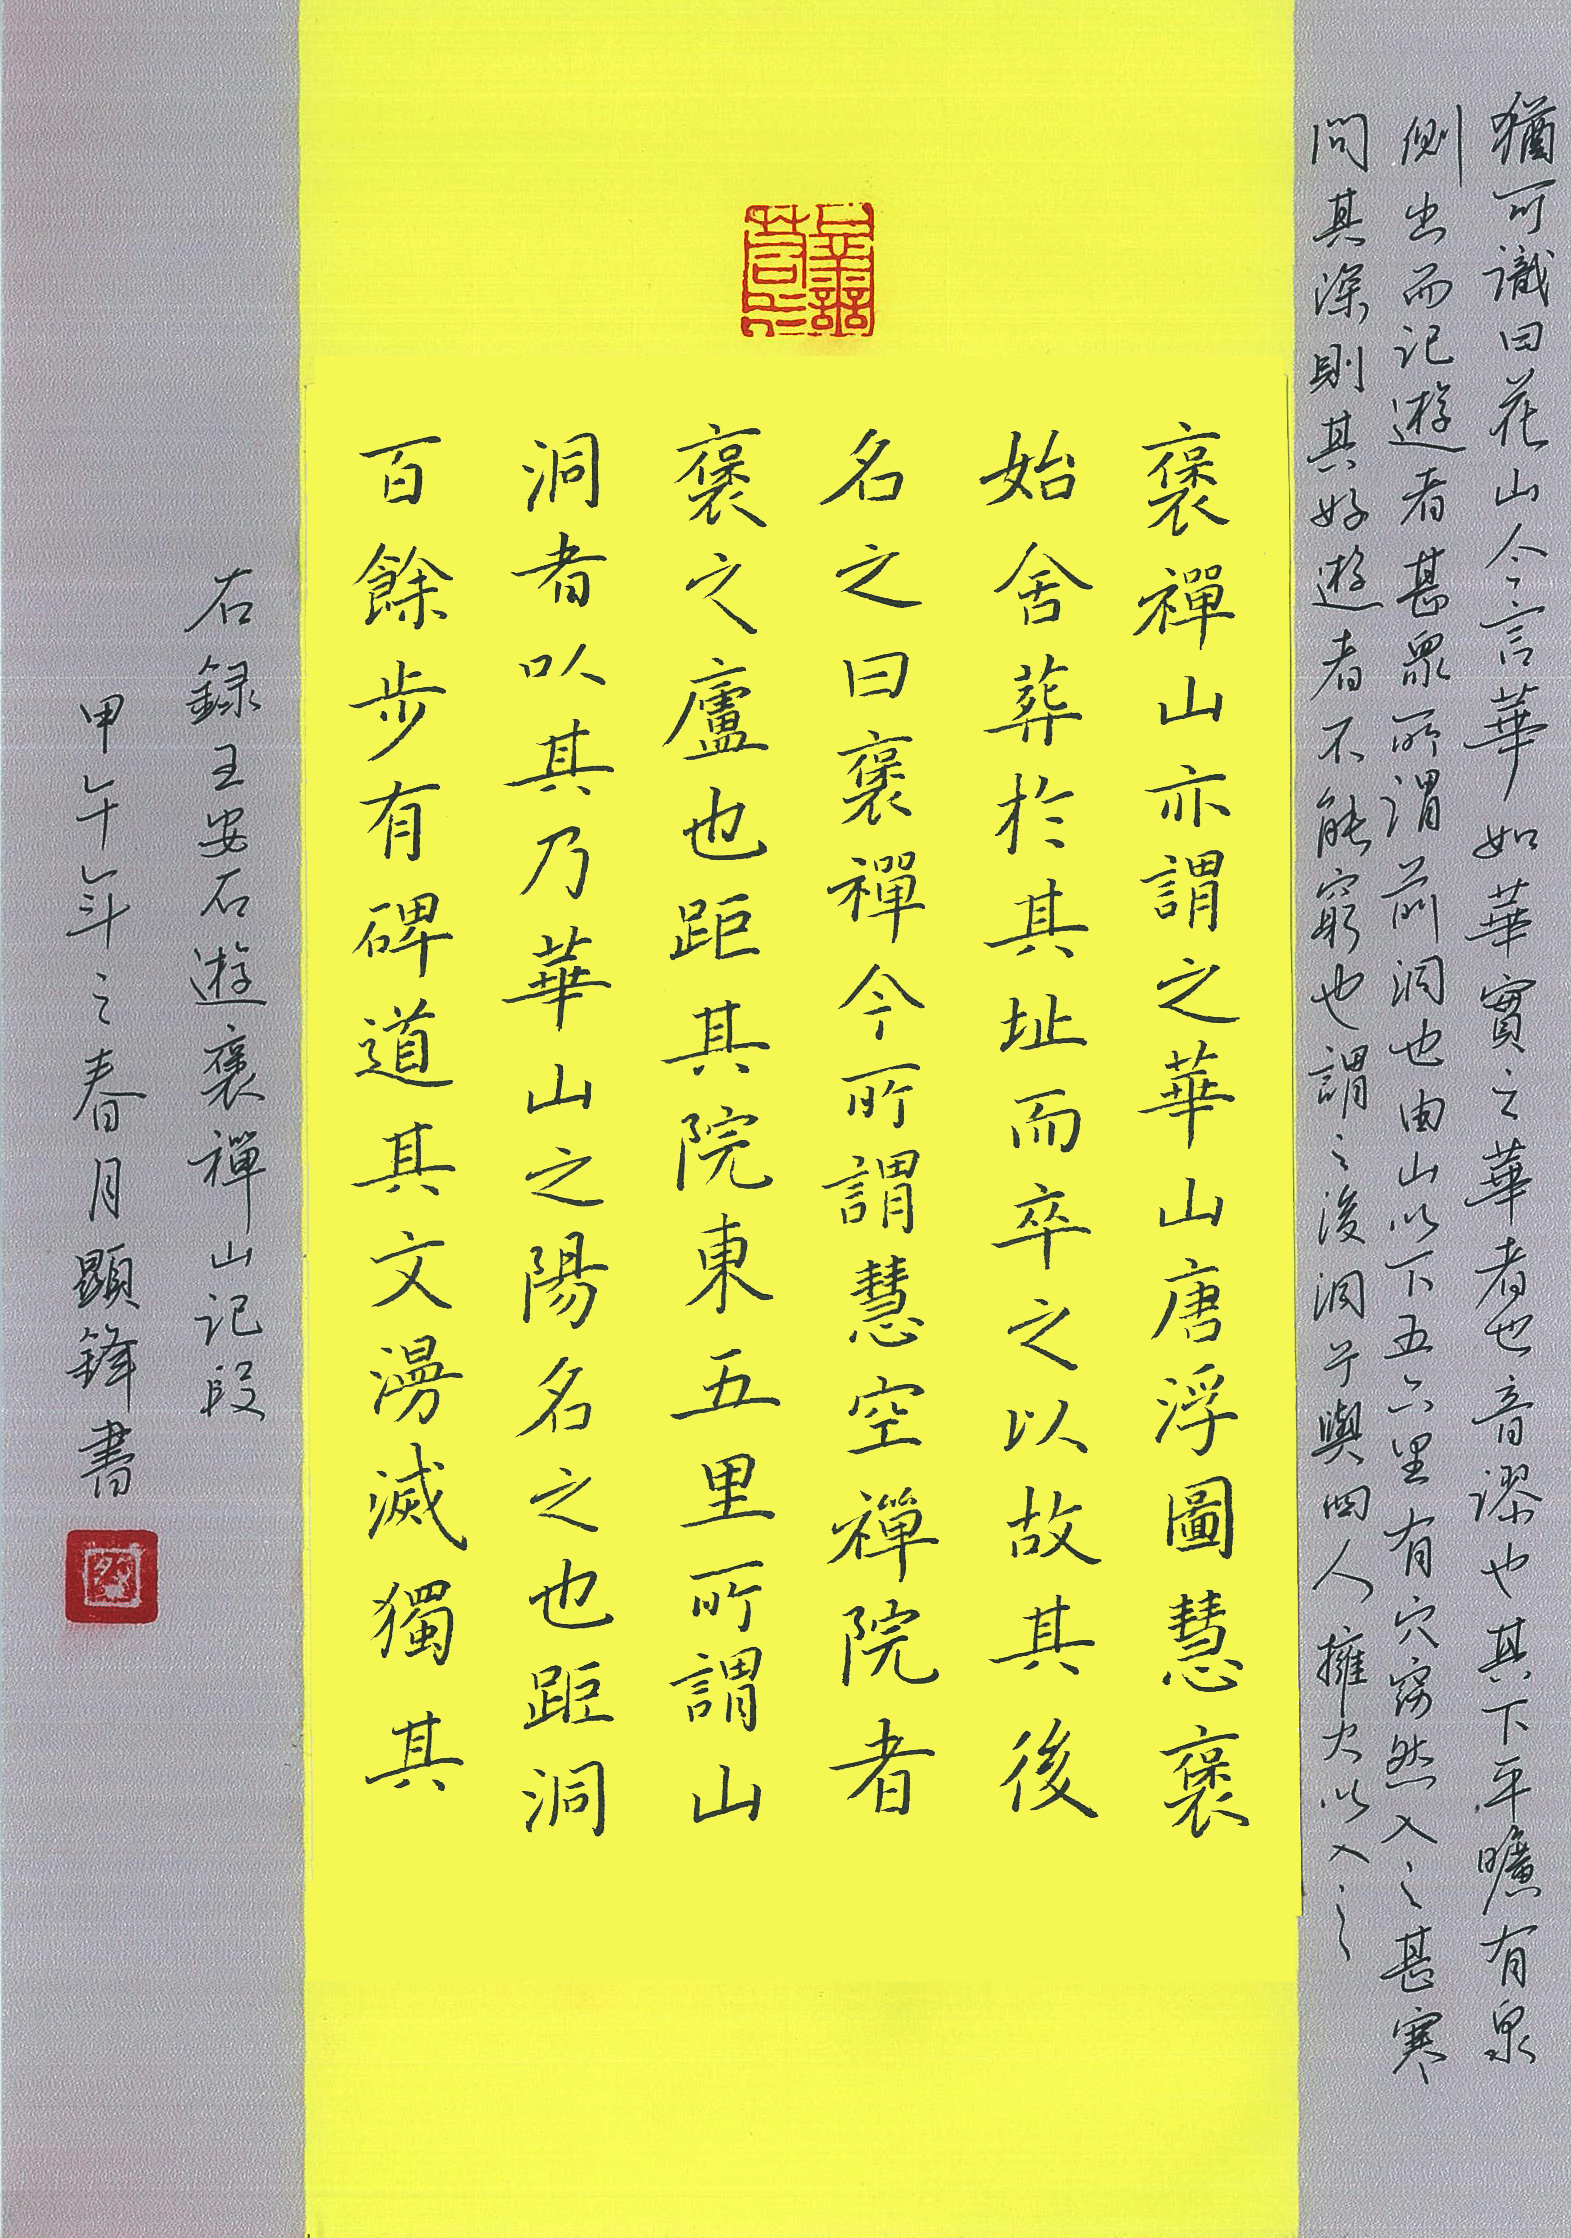 褒禪山亦謂之華山唐浮圖慧褒
始舍葬於其址而卒之以故其後
名之曰褒禪今所謂慧空禪院者
褒之廬也距其院東五里所謂山
洞者以其乃華山之陽名之也距洞
百餘步有碑道其文漫滅獨其
猶可識曰花山今言華如華實之華者也音謬也其下平曠有泉
側出而记遊者甚眾所谓前洞也由山以下五六里有穴窈然入之甚寒
問其深則其好遊者不能窮也謂之後洞予與四人擁火以入之
右録王安石遊褒禪山记段
甲午年之春月顯鋒書